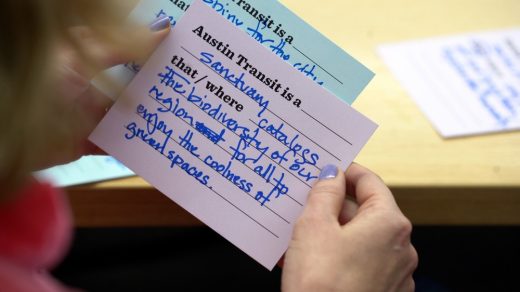 Transit is a
for the
Austin Transit is a
Sanctuary
that / where catalogs
the biodiversity of our
region for all to
enjoy the coolness of
green spaces.